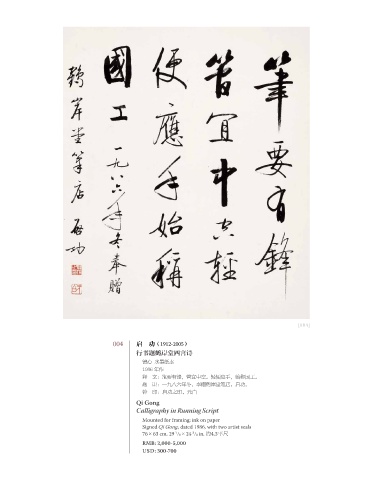 筆要有鋒
管宜中空輕
便應手始稱
國工 一九八六年冬奉贈
鶴岸堂筆店 啟功
004
启 功（1912-2005）
行书题鹤岸堂四言诗
镜心 水墨纸本
1986 年作
Qi Gong
Calligraphy in Running Script
Mounted for framing; ink on paper
Signed Qi Gong, dated 1986, with two artist seals
RMB: 2,000-5,000
USD: 300-700